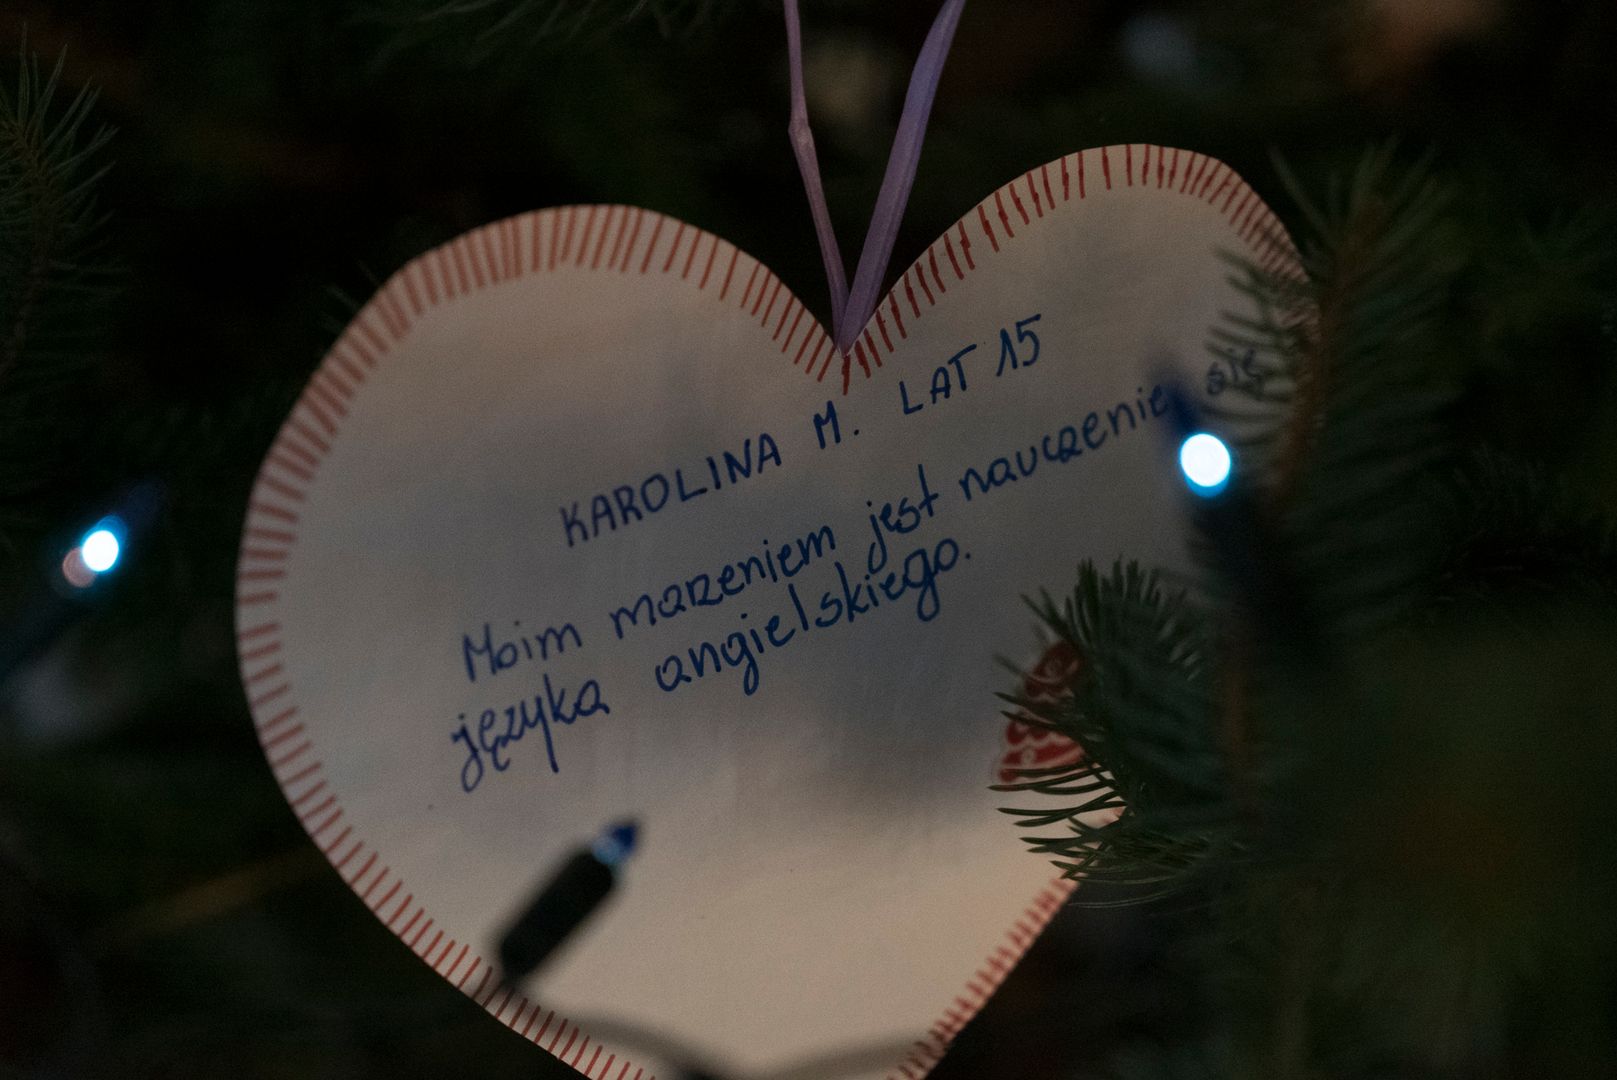 KAROLINA M. LAT 15
Moim marzeniem jest nauczenie się
języka angielskiego.